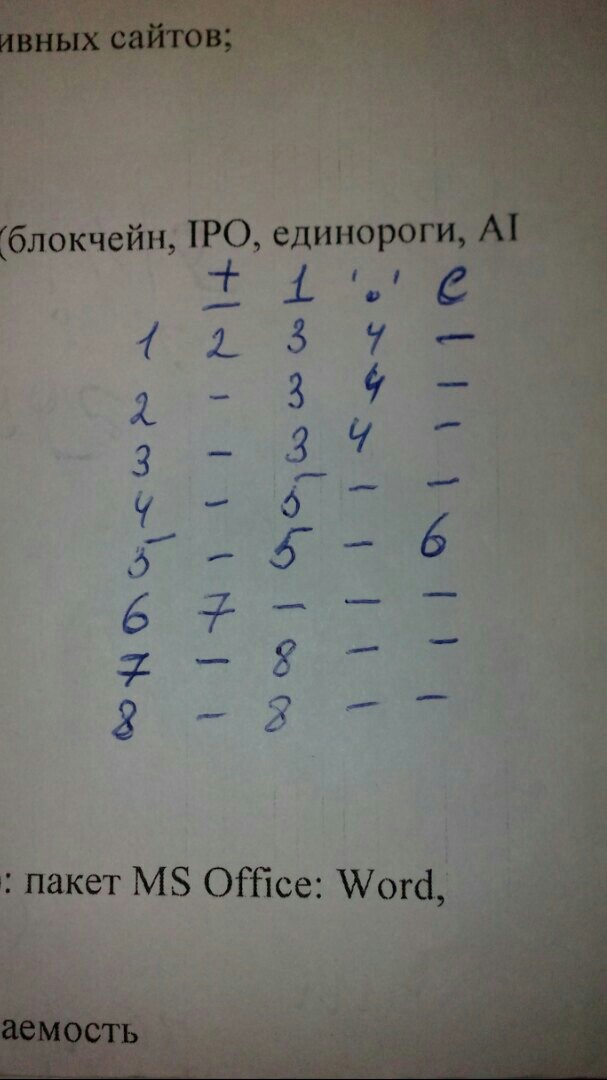 ивных сайтов;
(блокчейн, IPO, единороги, AI
± 1 '.' e
1 2 3 4 –
2 – 3 4 –
3 – 3 4 –
4 – 5 – –
5 – 5 – 6
6 7 – – –
7 – 8 – –
8 – 8 – –
: пакет MS Office: Word,
аемость